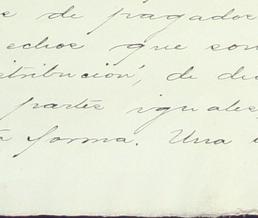 de pagados
echos que son
tribucion, de di
partes iguales
forma. Una